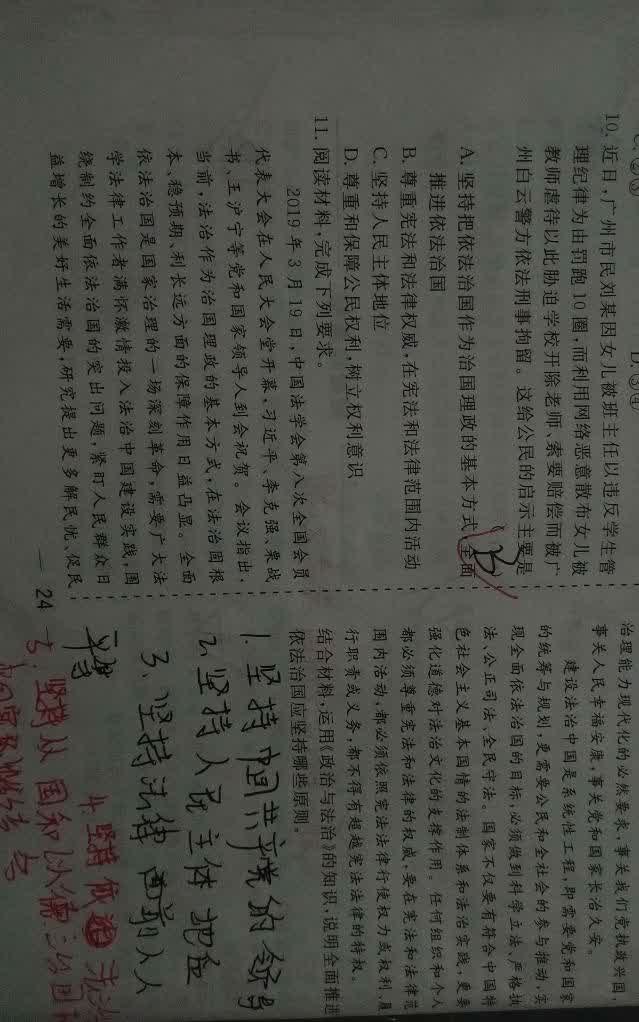 10. 近日,广州市民刘某因女儿被班主任以违反学生管
理纪律为由罚跑10圈,而利用网络恶意散布女儿被
教师虐待以此胁迫学校开除老师、索要赔偿而被广
州白云警方依法刑事拘留。这给公民的启示主要是
B
A. 坚持把依法治国作为治国理政的基本方式,全面
推进依法治国
B. 尊重宪法和法律权威,在宪法和法律范围内活动
C. 坚持人民主体地位
D. 尊重和保障公民权利,树立权利意识
11. 阅读材料,完成下列要求。
2019年3月19日,中国法学会第八次全国会员
代表大会在人民大会堂开幕,习近平、李克强、栗战
书、王沪宁等党和国家领导人到会祝贺。会议指出,
当前,法治作为治国理政的基本方式,在法治固根
本、稳预期、利长远方面的保障作用日益凸显。全面
依法治国是国家治理的一场深刻革命,需要广大法
学法律工作者满怀激情投入法治中国建设实践,围
绕制约全面依法治国的突出问题,紧盯人民群众日
益增长的美好生活需要,研究提出更多解民忧、促民
— 24
治理能力现代化的必然要求,事关我们党执政兴国,
事关人民幸福安康,事关党和国家长治久安。
建设法治中国是系统性工程,即需要党和国家
的统筹与规划,更需要公民和全社会的参与推动,实
现全面依法治国的目标,必须做到科学立法、严格执
法、公正司法、全民守法。国家不仅要有符合中国特
色社会主义基本国情的法制体系和法治实践,更要
强化道德对法治文化的支撑作用。任何组织和个人
都必须尊重宪法和法律的权威,要在宪法和法律范
围内活动,都必须依照宪法法律行使权力或权利、履
行职责或义务,都不得有超越宪法法律的特权。
结合材料,运用《政治与法治》的知识,说明全面推进
依法治国应坚持哪些原则。
1. 坚持中国共产党的领导
2. 坚持人民主体地位
3. 坚持法律面前人人
平等
4. 坚持依法治
5. 坚持从